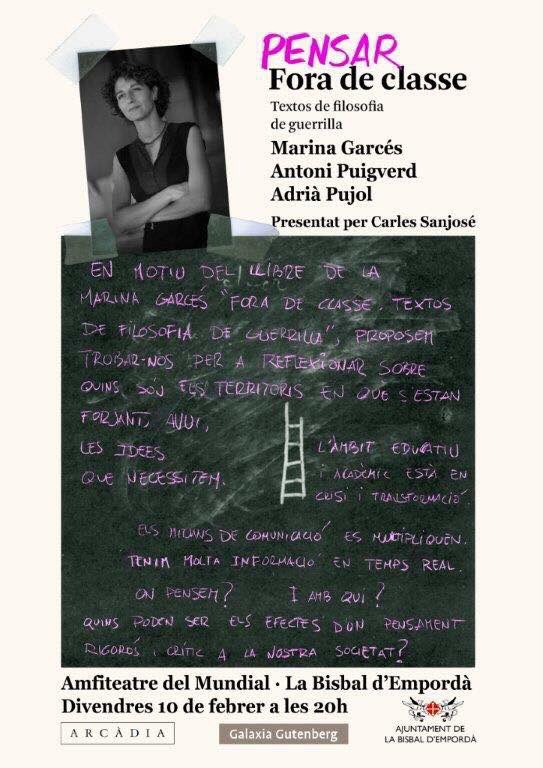 PENSAR
Fora de classe
Textos de filosofia
de guerrilla
Marina Garcés
Antoni Puigverd
Adrià Pujol
Presentat per Carles Sanjosé
EN MOTIU DEL LLIBRE DE LA
MARINA GARCÉS "FORA DE CLASSE. TEXTOS
DE FILOSOFIA DE GUERRILLA", PROPOSEM
TROBAR-NOS PER A REFLEXIONAR SOBRE
QUINS SÓN ELS TERRITORIS EN QUE S'ESTAN
FORJANT, AVUI,
LES IDEES
QUE NECESSITEM.
L'ÀMBIT EDUCATIU
I ACADÈMIC ESTÀ EN
CRISI I TRANSFORMACIÓ
ELS MITJANS DE COMUNICACIÓ ES MULTIPLIQUEN.
TENIM MOLTA INFORMACIÓ EN TEMPS REAL.
ON PENSEM? I AMB QUI?
QUINS PODEN SER ELS EFECTES D'UN PENSAMENT
RIGORÓS I CRÍTIC A LA NOSTRA SOCIETAT?
Amfiteatre del Mundial · La Bisbal d'Empordà
Divendres 10 de febrer a les 20h
ARCÀDIA
Galaxia Gutenberg
AJUNTAMENT DE
LA BISBAL D'EMPORDÀ